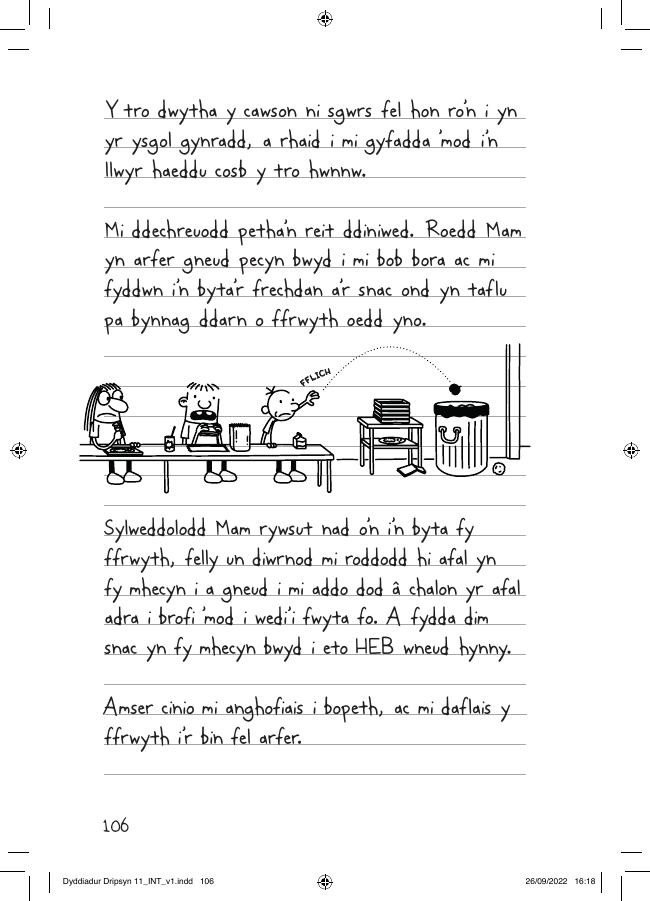 Y tro dwytha y cawson ni sgwrs fel hon ro'n i yn
yr ysgol gynradd, a rhaid i mi gyfadda 'mod i'n
llwyr haeddu cosb y tro hwnnw.
Mi ddechreuodd petha'n reit ddiniwed. Roedd Mam
yn arfer gneud pecyn bwyd i mi bob bora ac mi
fyddwn i'n byta'r frechdan a'r snac ond yn taflu
pa bynnag ddarn o ffrwyth oedd yno.
FFLICH
Sylweddolodd Mam rywsut nad o'n i'n byta fy
ffrwyth, felly un diwrnod mi roddodd hi afal yn
fy mhecyn i a gneud i mi addo dod â chalon yr afal
adra i brofi 'mod i wedi'i fwyta fo. A fydda dim
snac yn fy mhecyn bwyd i eto HEB wneud hynny.
Amser cinio mi anghofiais i bopeth, ac mi daflais y
ffrwyth i'r bin fel arfer.
106
Dyddiadur Dripsyn 11_INT_v1.indd 106
26/09/2022 16:18